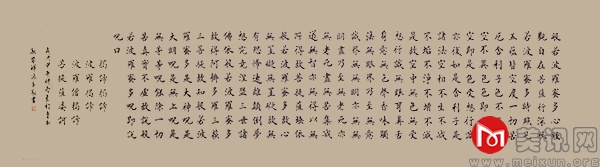 般若波羅蜜多心經
觀自在菩薩行深般
若波羅蜜多時照見
五蘊皆空度一切苦
厄舍利子色不異空
空不異色色即是空
空即是色受想行識
亦復如是舍利子是
諸法空相不生不滅
不垢不淨不增不減
是故空中無色無受
想行識無眼耳鼻舌
身意無色聲香味觸
法無眼界乃至無意
識界無無明亦無無
明盡乃至無老死亦
無老死盡無苦集滅
道無智亦無得以無
所得故菩提薩埵依
般若波羅蜜多故心
無罣礙無罣礙故無
有恐怖遠離顛倒夢
想究竟涅槃三世諸
佛依般若波羅蜜多
故得阿耨多羅三藐
三菩提故知般若波
羅蜜多是大神呪是
大明呪是無上呪是
無等等呪能除一切
苦真實不虛故說般
若波羅蜜多呪即說
呪曰
揭諦揭諦
波羅揭諦
波羅僧揭諦
菩提薩婆訶
美讯网
www.meixun.org